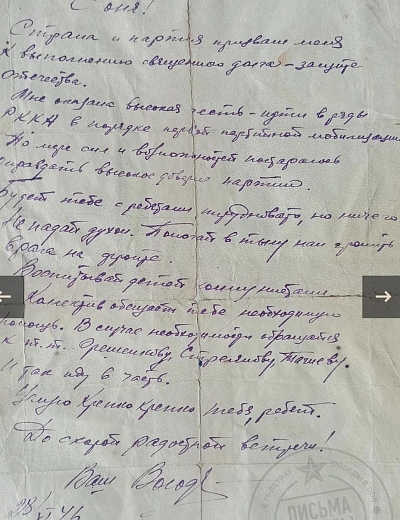 Соня!
Страна и партия призвали меня
к выполнению священного долга – защите
отечества.
Мне оказана высокая честь – идти в ряды
РККА в порядке первой партийной мобилизации
По мере сил и возможностей постараюсь
оправдать высокое доверие партии.
Будет тебе с ребятами трудновато, но ничего
Не падай духом. Помогай в тылу нам громить
врага на фронте.
Воспитывай детей коммунистами
Коллектив обещает тебе необходимую
помощь. В случае необходимости обращайся
к т.т. Стрелкову,
И так иду в часть.
Целую крепко крепко тебя, ребят.
До скорой радостной встречи!
Ваш Володя
ПИСЬМА